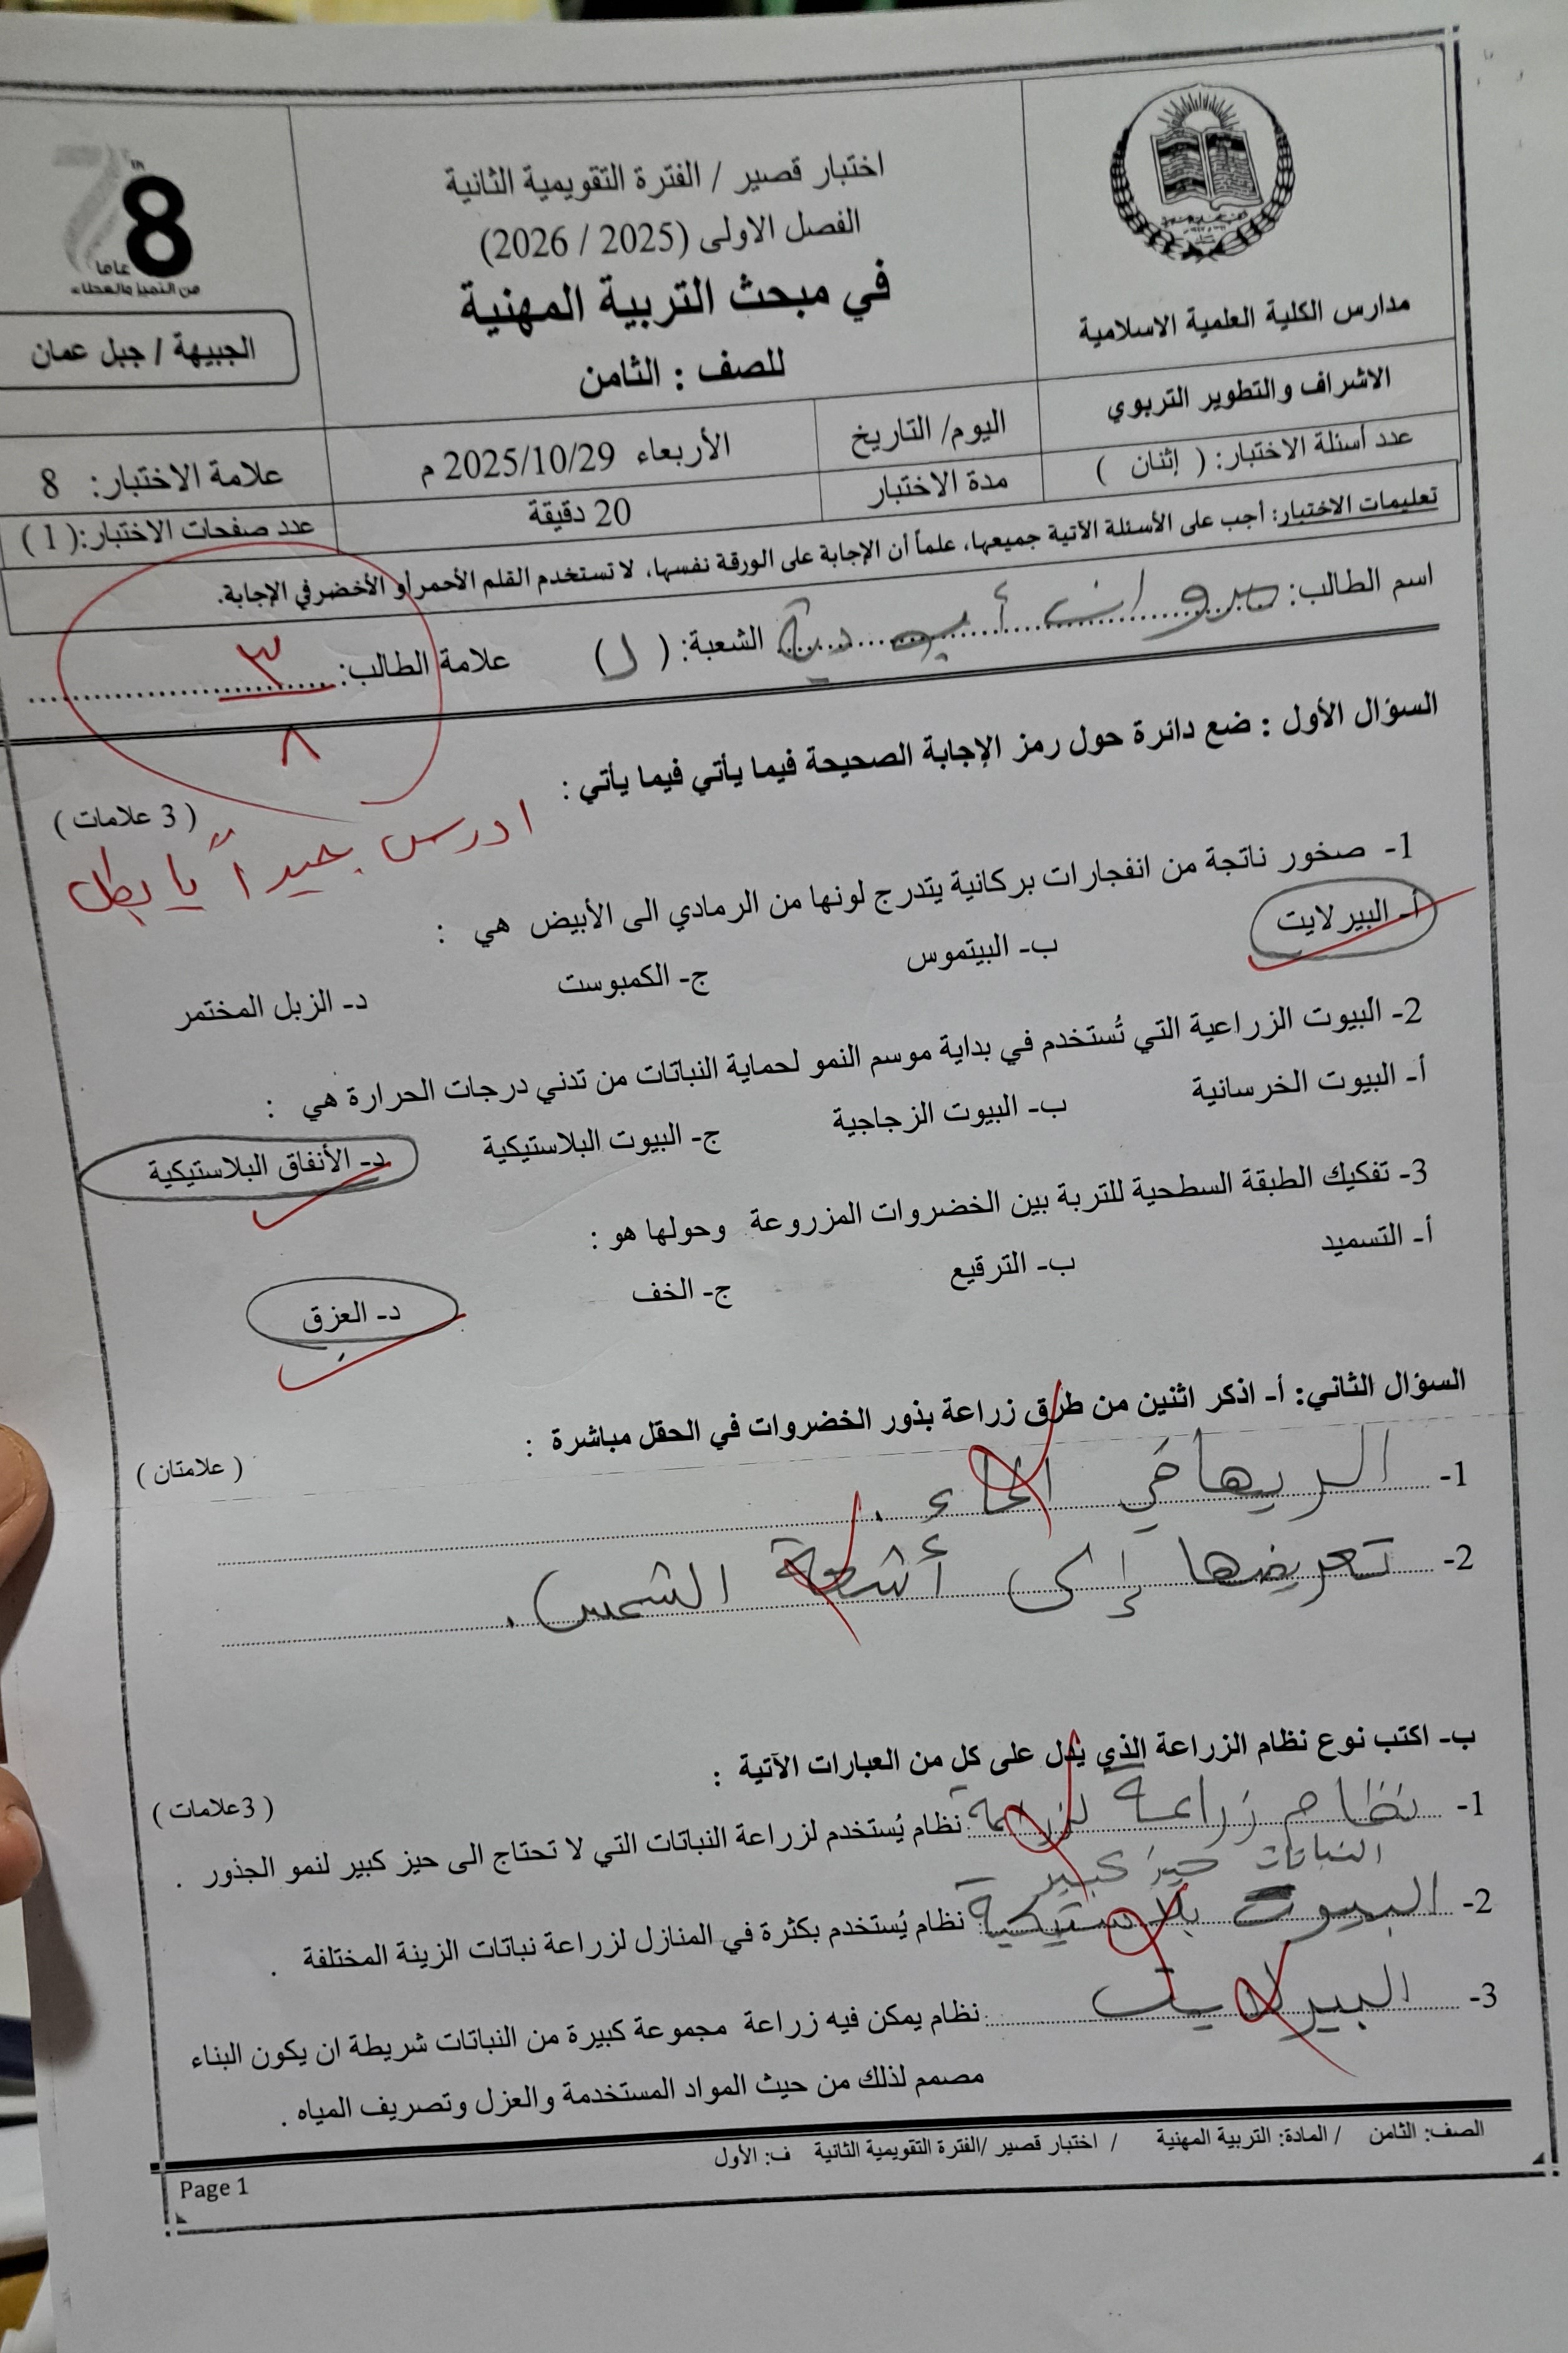 مدارس الكلية العلمية الاسلامية
الاشراف والتطوير التربوي
عدد أسئلة الاختبار: ( إثنان )
اختبار قصير / الفترة التقويمية الثانية
الفصل الاولى (2025 / 2026)
في مبحث التربية المهنية
للصف : الثامن
اليوم/ التاريخ
الأربعاء 2025/10/29 م
مدة الاختبار
20 دقيقة
78
عاما
من التميز والعطاء
الجبيهة / جبل عمان
علامة الاختبار: 8
عدد صفحات الاختبار:( 1 )
تعليمات الاختبار: أجب على الأسئلة الآتية جميعها، علماً أن الإجابة على الورقة نفسها، لا تستخدم القلم الأحمر أو الأخضر في الإجابة.
اسم الطالب: الشعبة: ( د ) علامة الطالب: ٣
٨
السؤال الأول : ضع دائرة حول رمز الإجابة الصحيحة فيما يأتي فيما يأتي :
( 3 علامات )
ادرس جيداً يا بطل
1- صخور ناتجة من انفجارات بركانية يتدرج لونها من الرمادي الى الأبيض هي :
أ- البيرلايت ب- البيتموس ج- الكمبوست د- الزبل المختمر
2- البيوت الزراعية التي تُستخدم في بداية موسم النمو لحماية النباتات من تدني درجات الحرارة هي :
أ- البيوت الخرسانية ب- البيوت الزجاجية ج- البيوت البلاستيكية د- الأنفاق البلاستيكية
3- تفكيك الطبقة السطحية للتربة بين الخضروات المزروعة وحولها هو :
أ- التسميد ب- الترقيع ج- الخف د- العزق
السؤال الثاني: أ- اذكر اثنين من طرق زراعة بذور الخضروات في الحقل مباشرة :
( علامتان )
1- الماء .
2- تعريضها إلى أشعة الشمس .
ب- اكتب نوع نظام الزراعة الذي يدل على كل من العبارات الآتية :
( 3علامات )
1- نظام زراعة لزراعة نظام يُستخدم لزراعة النباتات التي لا تحتاج الى حيز كبير لنمو الجذور .
النباتات حيز كبير
2- البيوت بلاستيكية نظام يُستخدم بكثرة في المنازل لزراعة نباتات الزينة المختلفة .
3- البيرلايت نظام يمكن فيه زراعة مجموعة كبيرة من النباتات شريطة ان يكون البناء
مصمم لذلك من حيث المواد المستخدمة والعزل وتصريف المياه .
الصف: الثامن / المادة: التربية المهنية / اختبار قصير /الفترة التقويمية الثانية ف: الأول
Page 1